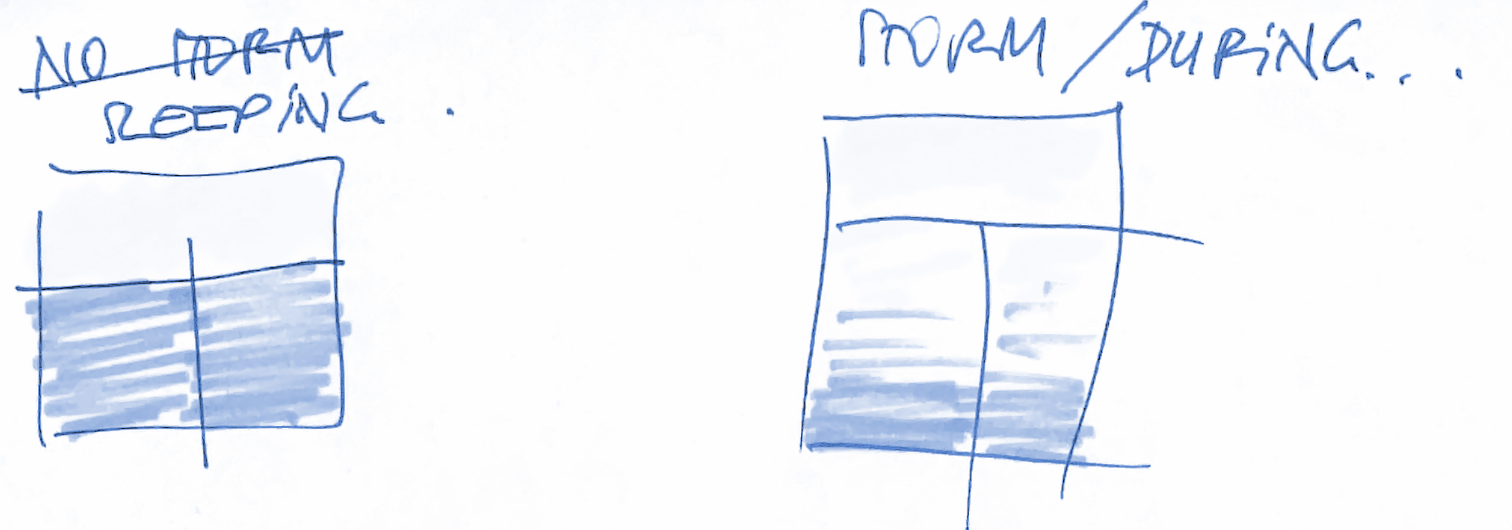 NO STORM
SLEEPING.
STORM / DURING...